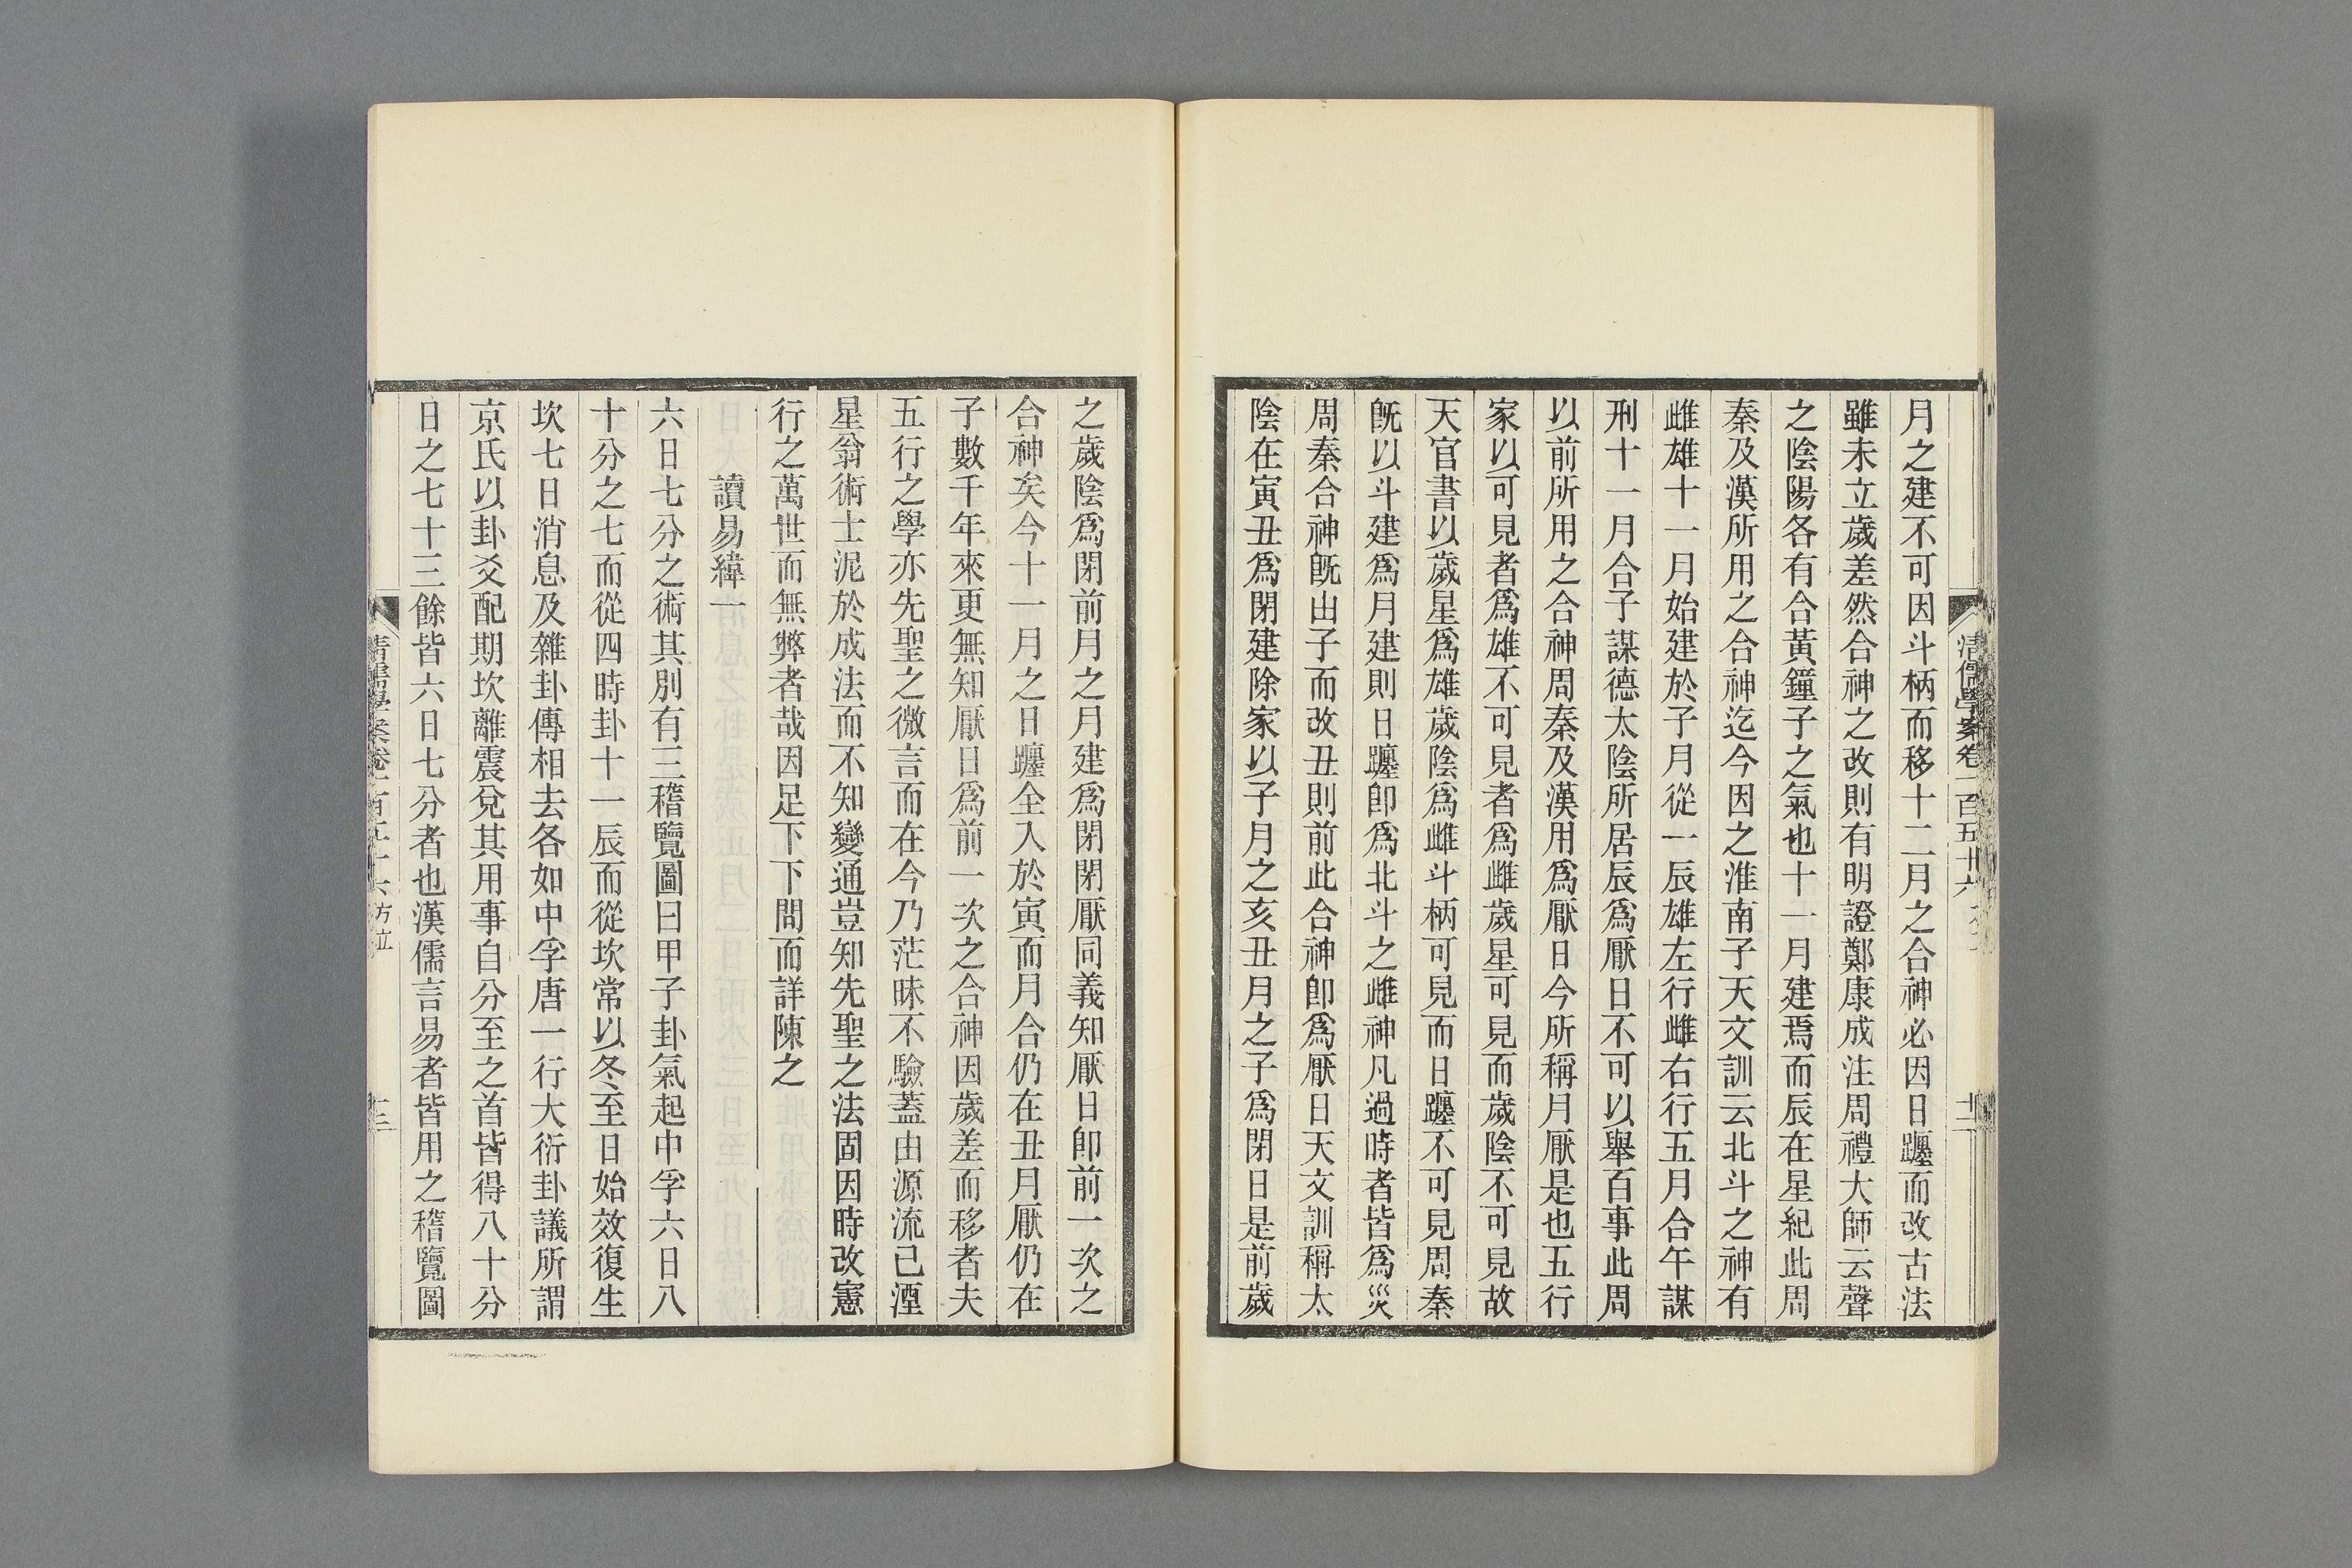 月之建不可因斗柄而移十二月之合神必因日躔而改古法
雖未立歲差然合神之改則有明證鄭康成注周禮大師云聲
之陰陽各有合黃鐘子之氣也十一月建焉而辰在星紀此周
秦及漢所用之合神迄今因之淮南子天文訓云北斗之神有
雌雄十一月始建於子月從一辰雄左行雌右行五月合午謀
刑十一月合子謀德太陰所居辰爲厭日不可以舉百事此周
以前所用之合神周秦及漢用爲厭日今所稱月厭是也五行
家以可見者爲雄不可見者爲雌歲星可見而歲陰不可見故
天官書以歲星爲雄歲陰爲雌斗柄可見而日躔不可見周秦
旣以斗建爲月建則日躔卽爲北斗之雌神凡過時者皆爲災
周秦合神旣由子而改丑則前此合神卽爲厭日天文訓稱太
陰在寅丑爲閉建除家以子月之亥丑月之子爲閉日是前歲
之歲陰爲閉前月之月建爲閉閉厭同義知厭日卽前一次之
合神矣今十一月之日躔全入於寅而月合仍在丑月厭仍在
子數千年來更無知厭日爲前一次之合神因歲差而移者夫
五行之學亦先聖之微言而在今乃茫昧不驗蓋由源流已湮
星翁術士泥於成法而不知變通豈知先聖之法固因時改憲
行之萬世而無弊者哉因足下下問而詳陳之
讀易緯一
六日七分之術其別有三稽覽圖曰甲子卦氣起中孚六日八
十分之七而從四時卦十一辰而從坎常以冬至日始效復生
坎七日消息及雜卦傳相去各如中孚唐一行大衍卦議所謂
京氏以卦爻配期坎離震兌其用事自分至之首皆得八十分
日之七十三餘皆六日七分者也漢儒言易者皆用之稽覽圖
清儒學案卷一百五十六 方立
十三